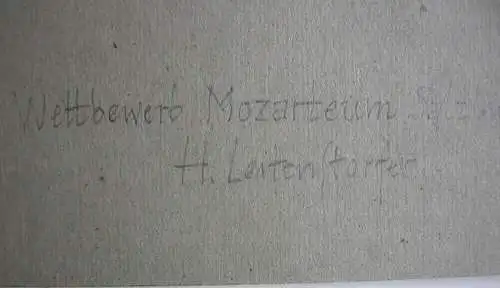 Wettbewerb Mozarteum
H. Leitenstorfer